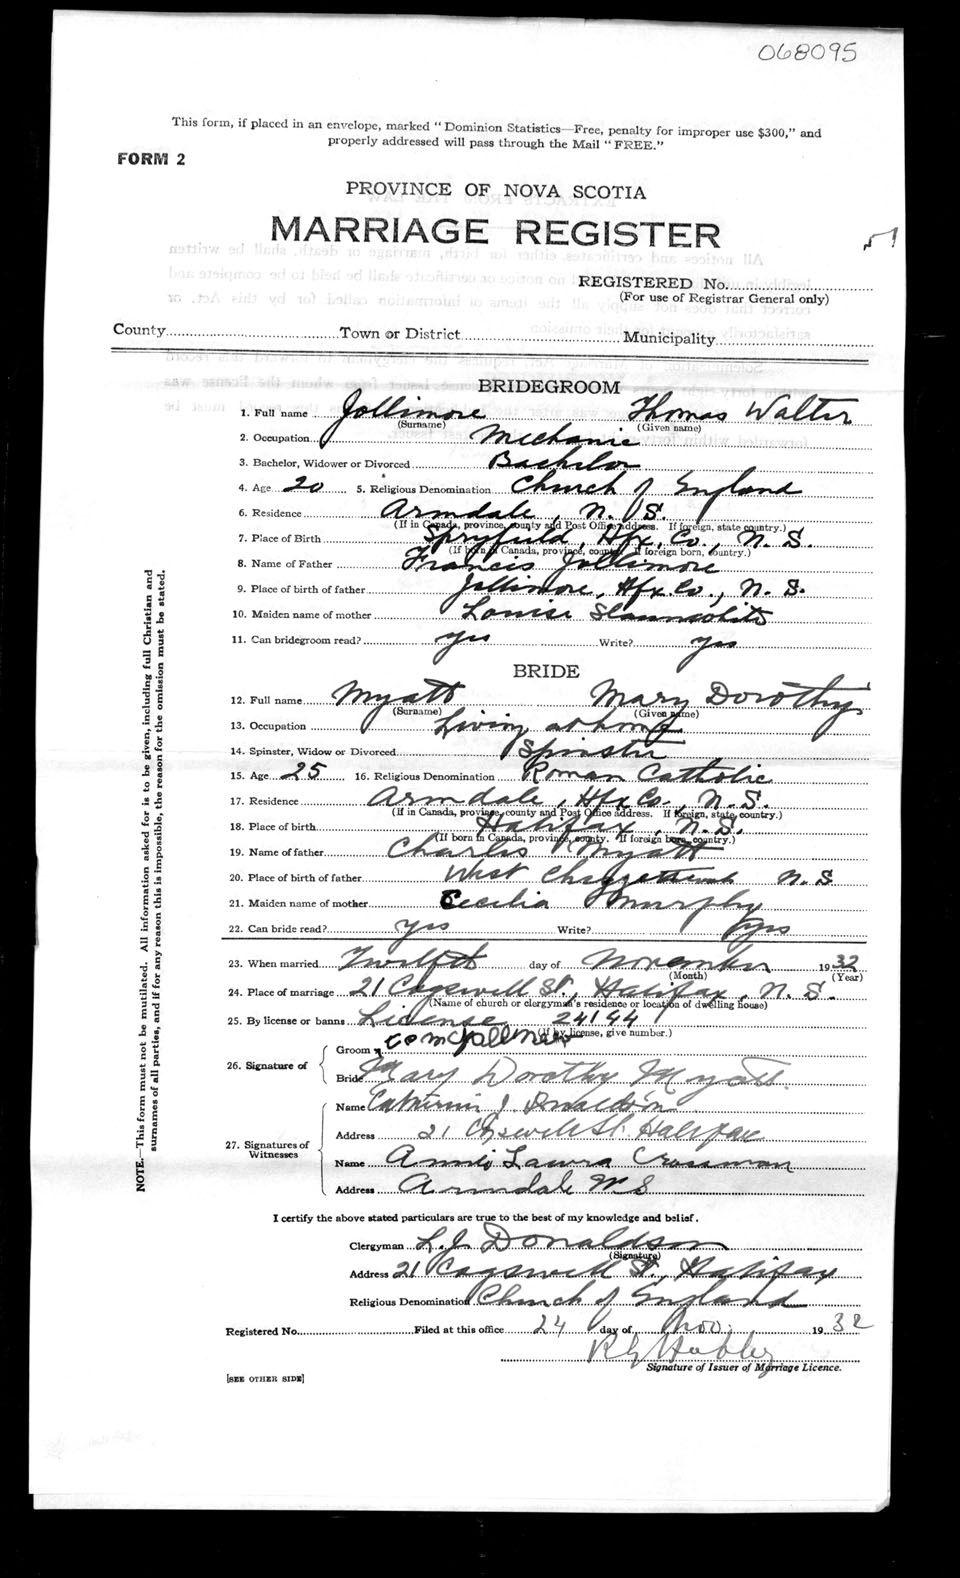 068095
This form, if placed in an envelope, marked "Dominion Statistics—Free, penalty for improper use $300," and
properly addressed will pass through the Mail "FREE."
FORM 2
PROVINCE OF NOVA SCOTIA
MARRIAGE REGISTER
REGISTERED No.
(For use of Registrar General only)
County Town or District Municipality
BRIDEGROOM
1. Full name Jollimore Thomas Walter
(Surname) (Given name)
2. Occupation Mechanic
3. Bachelor, Widower or Divorced Bachelor
4. Age 20 5. Religious Denomination Church of England
6. Residence Armdale, N. S.
(If in Canada, province, county and Post Office address. If foreign, state country.)
7. Place of Birth Spryfield, Hfx. Co., N. S.
(If born in Canada, province, county. If foreign born, country.)
8. Name of Father Francis Jollimore
9. Place of birth of father Jollimore, Hfx. Co., N. S.
10. Maiden name of mother Louise
11. Can bridegroom read? yes Write? yes
BRIDE
12. Full name Myatt Mary Dorothy
(Surname) (Given name)
13. Occupation Living at home
14. Spinster, Widow or Divorced Spinster
15. Age 25 16. Religious Denomination Roman Catholic
17. Residence Armdale, Hfx Co., N. S.
(If in Canada, province, county and Post Office address. If foreign, state country.)
18. Place of birth Halifax, N. S.
(If born in Canada, province, county. If foreign born, country.)
19. Name of father Charles Myatt
20. Place of birth of father West Chezzetcook N. S
21. Maiden name of mother Cecilia Murphy
22. Can bride read? yes Write? yes
23. When married Twelfth day of November 1932
(Month) (Year)
24. Place of marriage 21 Cogswell St., Halifax, N. S.
(Name of church or clergyman's residence or location of dwelling house)
25. By license or banns License 24144
(If by license, give number.)
26. Signature of
Groom
Bride Mary Dorothy Myatt
27. Signatures of
Witnesses
Name Catherine J. Donaldson
Address 21 Cogswell St. Halifax
Name Annie Laura Crossman
Address Armdale N S
I certify the above stated particulars are true to the best of my knowledge and belief.
Clergyman L. J. Donaldson
(Signature)
Address 21 Cogswell St., Halifax
Religious Denomination Church of England
Registered No. Filed at this office 24 day of Nov. 1932
Signature of Issuer of Marriage Licence.
[SEE OTHER SIDE]
NOTE.—This form must not be mutilated. All information asked for is to be given, including full Christian and
surnames of all parties, and if for any reason this is impossible, the reason for the omission must be stated.